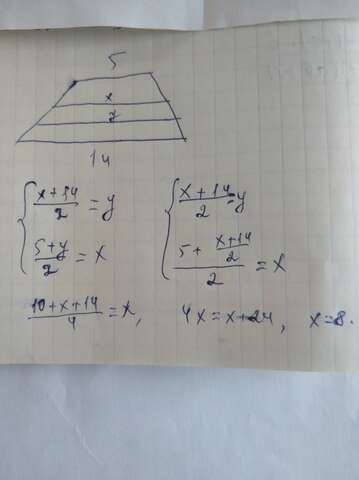 5
x
y
14
{ (x+14)/2 = y
(5+y)/2 = x
{ (x+14)/2 = y
(5 + (x+14)/2)/2 = x
(10+x+14)/4 = x, 4x = x+24, x=8.